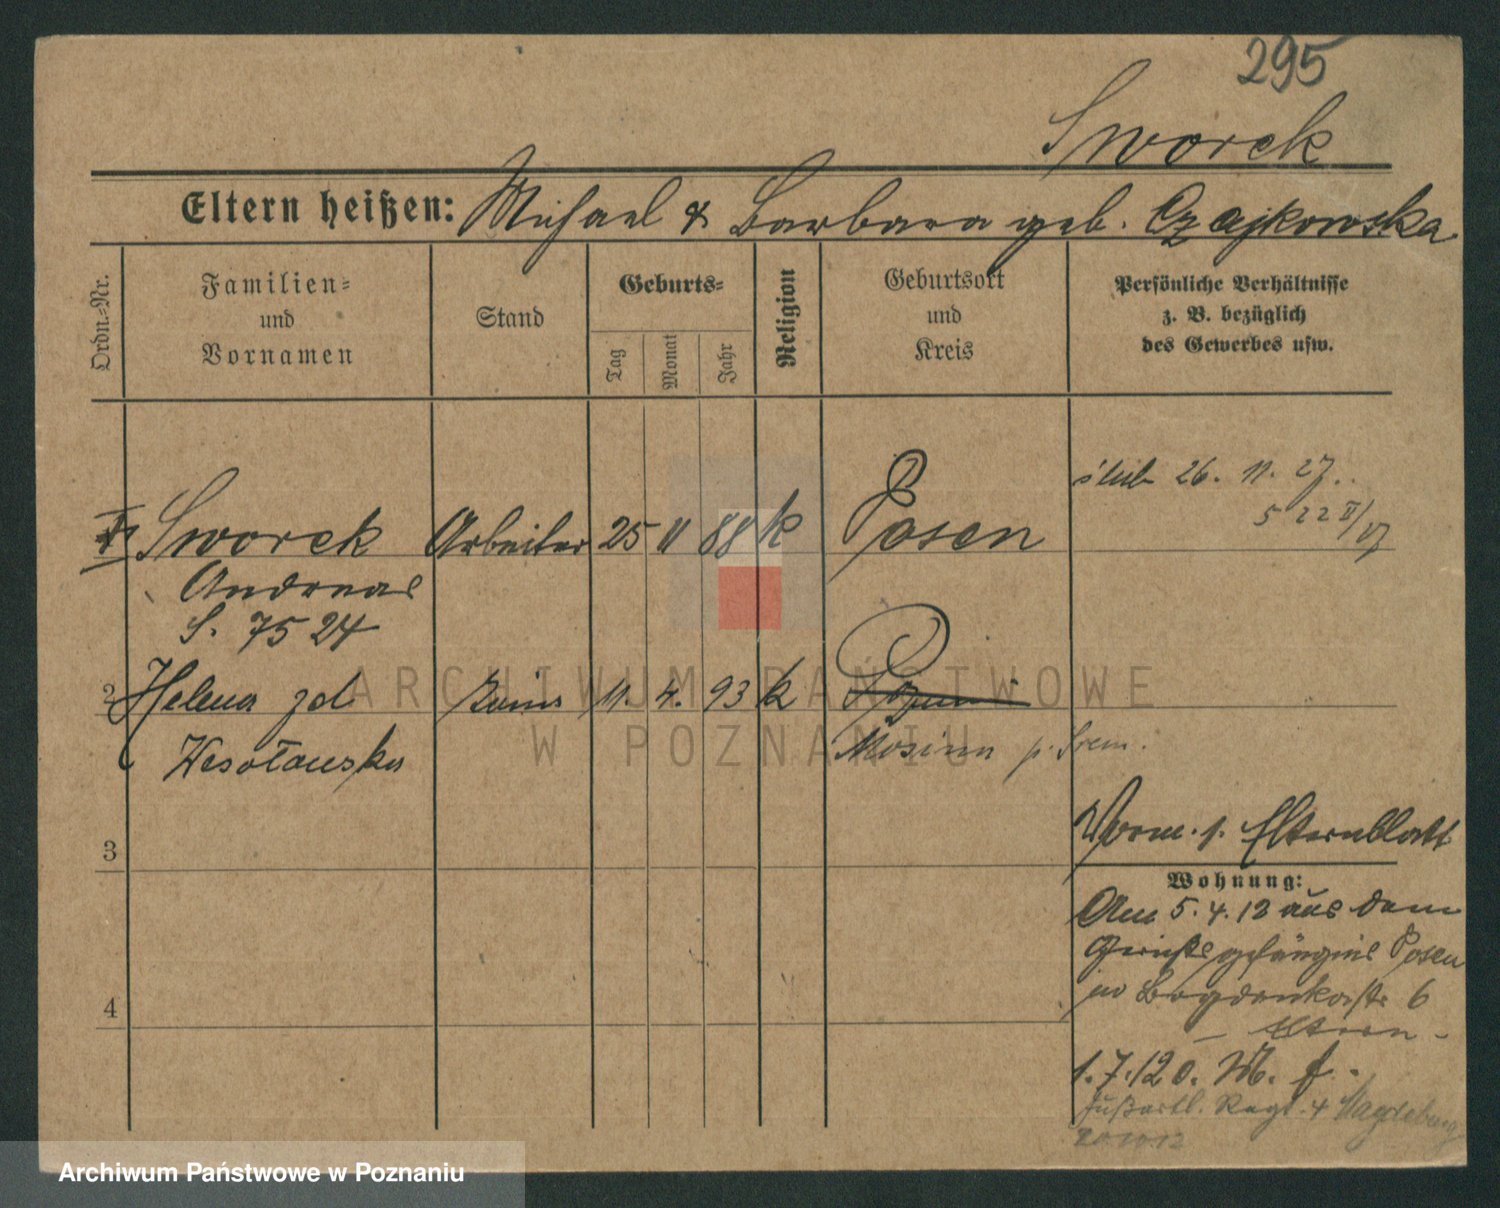 295
Sworek
Eltern heißen: Michael & Barbara geb. Czajkowska
Ordn.-Nr.
Familien- und Vornamen
Stand
Geburts-
Tag
Monat
Jahr
Religion
Geburtsort und Kreis
Persönliche Verhältnisse
z. B. bezüglich
des Gewerbes usw.
ślub 26. 11. 27.
Sworek Arbeiter 25 11 88 k Posen
Andreas
S. 7524
2 Helena zd 11. 4. 93 k
Wesołowska Mosina p. Śrem.
3
Vorm. s. Elternblatt
Wohnung:
Am 5.4.12 aus dem
Gerichtsgefängnis Posen
in Bogdankastr 6
4
– Eltern –
1.7.12 0. M. f.
Fußartl. Regt. 4 Magdeburg
ARCHIWUM PAŃSTWOWE
W POZNANIU
Archiwum Państwowe w Poznaniu